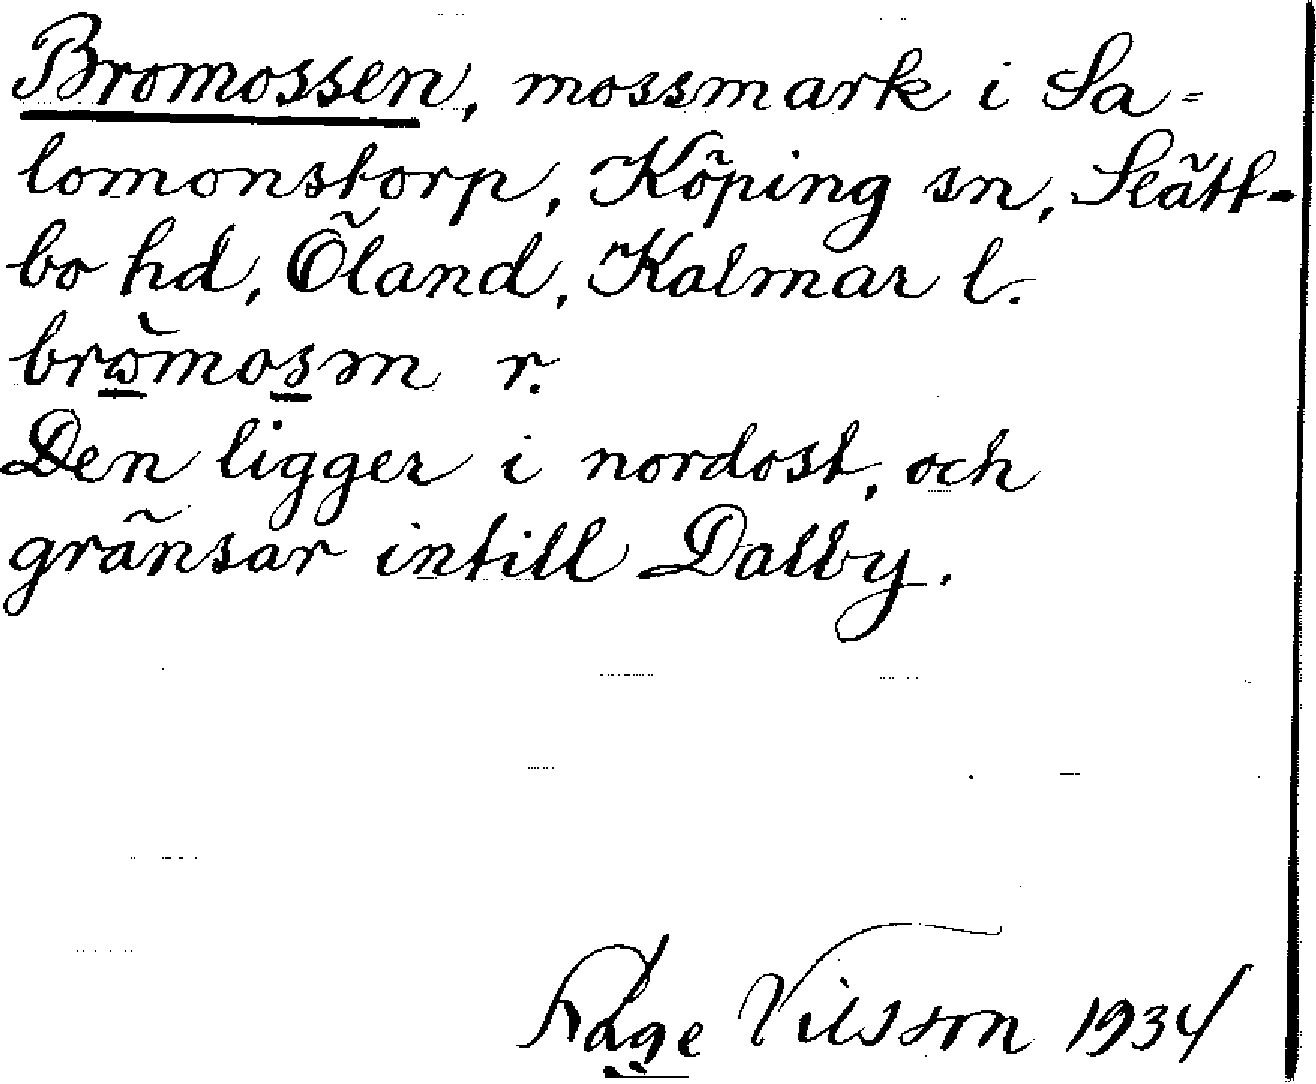 Bromossen, mossmark i Sa-
lomonstorp, Köping sn, Slätt-
bo hd, Öland, Kalmar l.
bròmosm r.
Den ligger i nordost, och
gränsar intill Dalby.
Åge Nilsson 1934